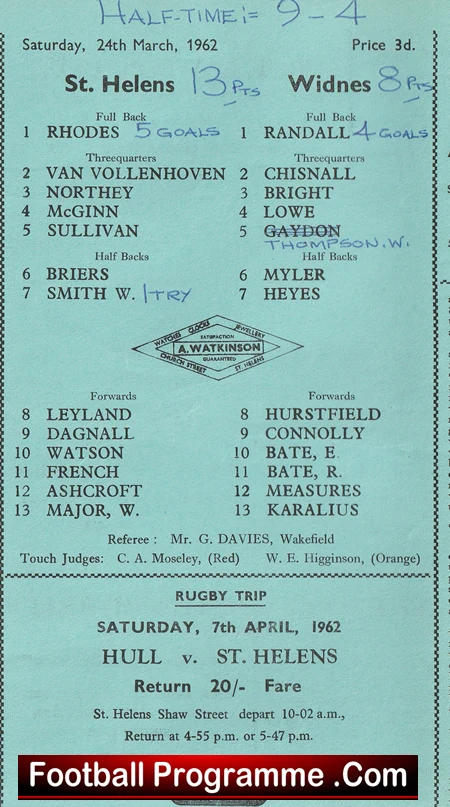 HALF-TIME:= 9-4
Saturday, 24th March, 1962 Price 3d.
St. Helens 13 PTS Widnes 8 PTS
Full Back Full Back
1 RHODES 5 GOALS 1 RANDALL 4 GOALS
Threequarters Threequarters
2 VAN VOLLENHOVEN 2 CHISNALL
3 NORTHEY 3 BRIGHT
4 McGINN 4 LOWE
5 SULLIVAN 5 GAYDON
THOMPSON.W.
Half Backs Half Backs
6 BRIERS 6 MYLER
7 SMITH W. 1 TRY 7 HEYES
WATCHES CLOCKS JEWELLERY
SATISFACTION
A. WATKINSON
GUARANTEED
CHURCH STREET ST. HELENS
Forwards Forwards
8 LEYLAND 8 HURSTFIELD
9 DAGNALL 9 CONNOLLY
10 WATSON 10 BATE, E.
11 FRENCH 11 BATE, R.
12 ASHCROFT 12 MEASURES
13 MAJOR, W. 13 KARALIUS
Referee : Mr. G. DAVIES, Wakefield
Touch Judges: C. A. Moseley, (Red) W. E. Higginson, (Orange)
RUGBY TRIP
SATURDAY, 7th APRIL, 1962
HULL v. ST. HELENS
Return 20/- Fare
St. Helens Shaw Street depart 10-02 a.m.,
Return at 4-55 p.m. or 5-47 p.m.
Football Programme .Com